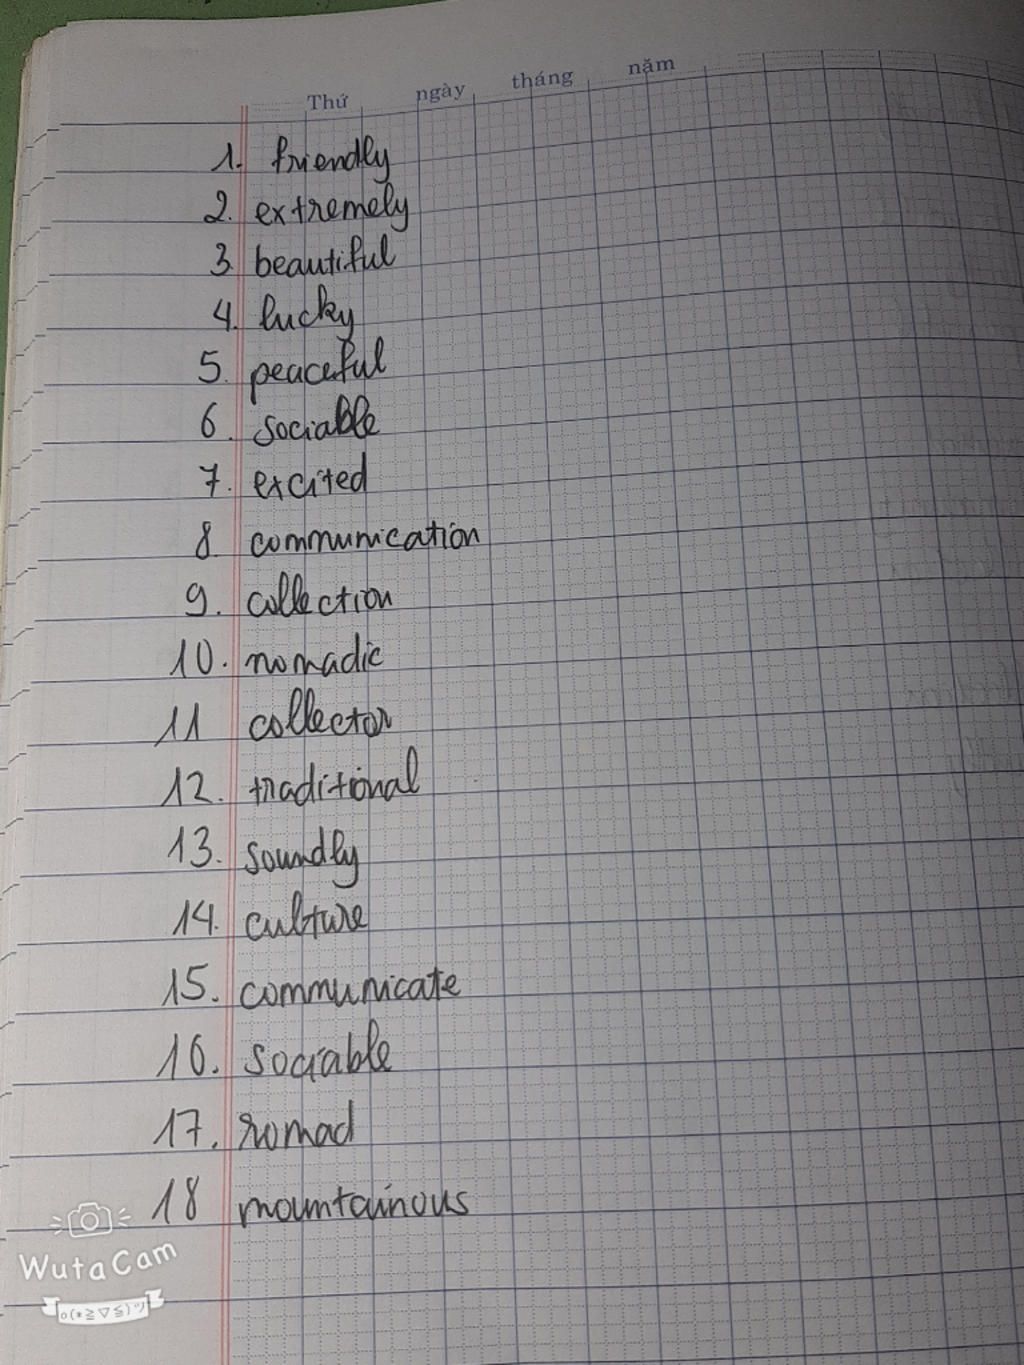 Thứ ngày tháng năm
1. friendly
2. extremely
3. beautiful
4. lucky
5. peaceful
6. sociable
7. excited
8. communication
9. collection
10. nomadic
11 collector
12. traditional
13. soundly
14. culture
15. communicate
16. sociable
17. nomad
18 mountainous
WutaCam
o(*≧▽≦)ツ